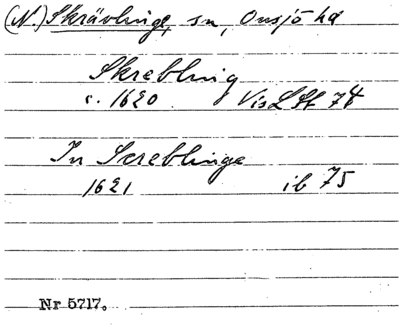 (N.) Skrävlinge, sn, Onsjö hd
Skrebling
c. 1620 Vis L St 74
In Screblinge
1621 ib 75
Nr 5717.